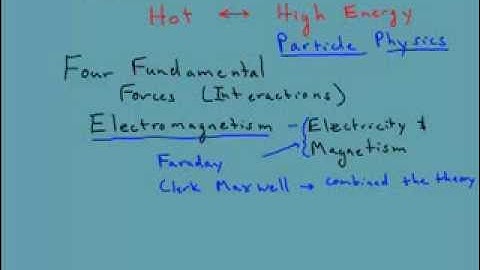 Hot ↔ High Energy
Particle Physics
Four Fundamental
Forces (Interactions)
Electromagnetism - { Electricity &
Magnetism
Faraday
Clerk Maxwell → combined the theory